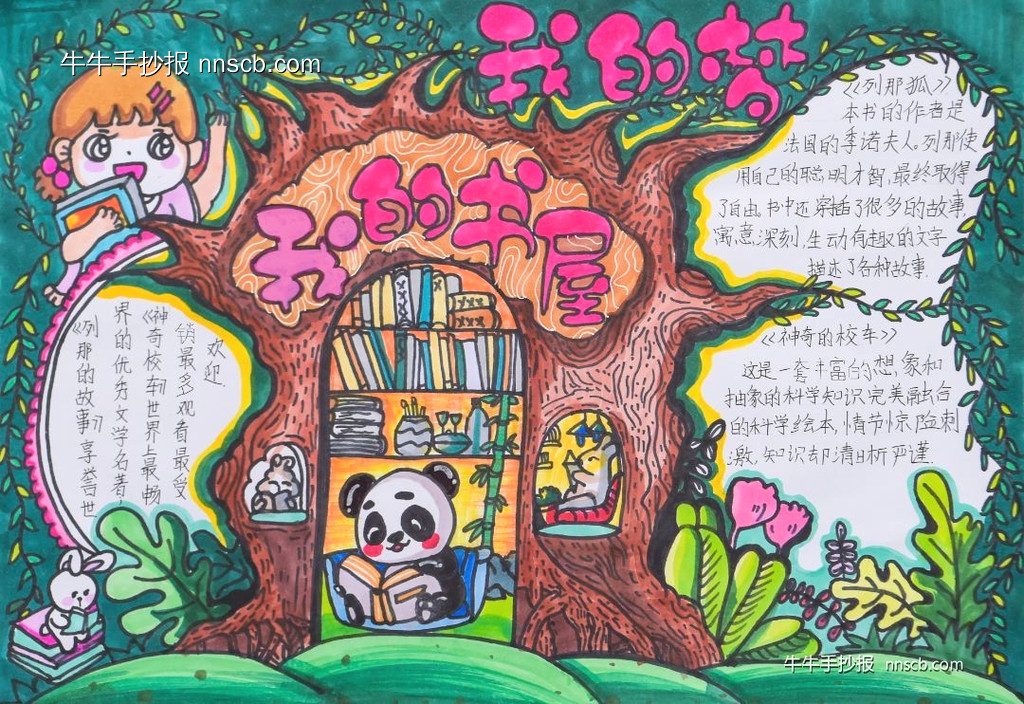 牛牛手抄报 nnscb.com
我的梦
我的书屋
《列那的故事》享誉世
界的优秀文学名著,
《神奇校车》世界上最畅
销最多观看最受
欢迎.
《列那狐》
本书的作者是
法国的季诺夫人。列那使
用自己的聪明才智,最终取得
了自由。书中还穿插了很多的故事,
寓意深刻,生动有趣的文字
描述了各种故事.
《神奇的校车》
这是一套丰富的想象和
抽象的科学知识完美融合
的科学绘本,情节惊险刺
激,知识却清晰严谨.
牛牛手抄报 nnscb.com